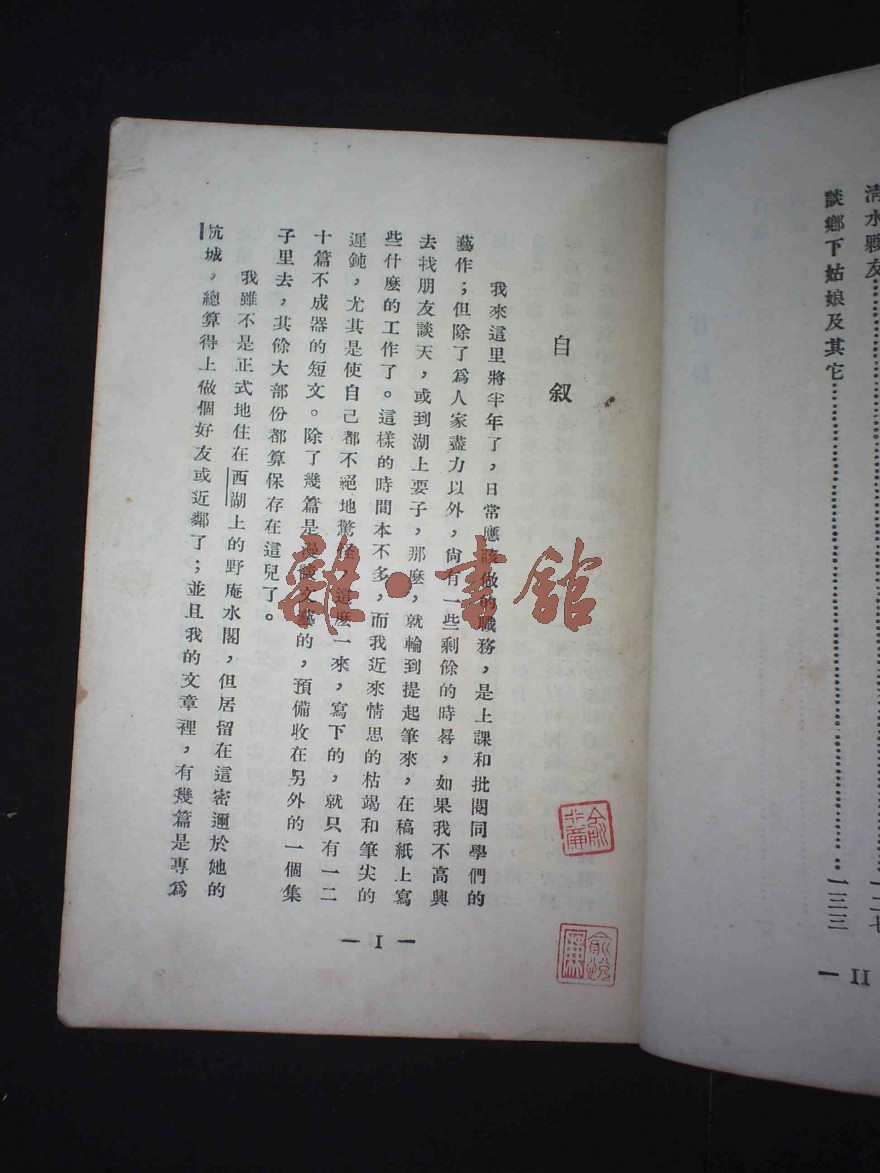 清水驛友……………………………一二七
談鄉下姑娘及其它……………………………一三三
— II
自叙
我來這里將半年了，日常應該做的職務，是上課和批閱同學們的
藝作；但除了爲人家盡力以外，尙有一些剩餘的時晷，如果我不高興
去找朋友談天，或到湖上耍子，那麼，就輪到提起筆來，在稿紙上寫
些什麼的工作了。這樣的時間本不多，而我近來情思的枯竭和筆尖的
遲鈍，尤其是使自己都不絕地驚怪，這麼一來，寫下的，就只有一二
十篇不成器的短文。除了幾篇是漫談文藝的，預備收在另外的一個集
子里去，其餘大部份都算保存在這兒了。
我雖不是正式地住在西湖上的野庵水閣，但居留在這密邇於她的
杭城，總算得上做個好友或近鄰了；並且我的文章裡，有幾篇是專爲
— I —
雜·書館